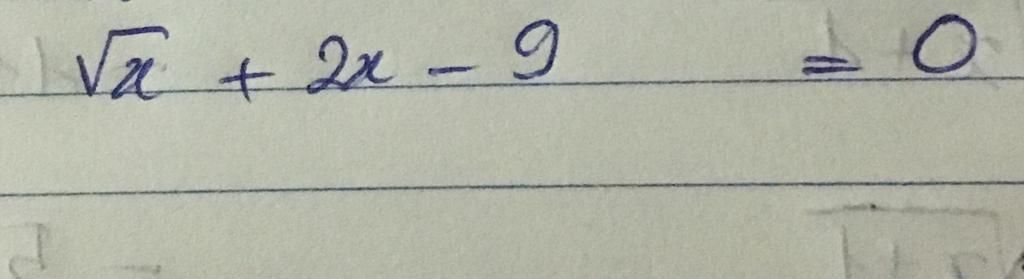 √x + 2x - 9 = 0